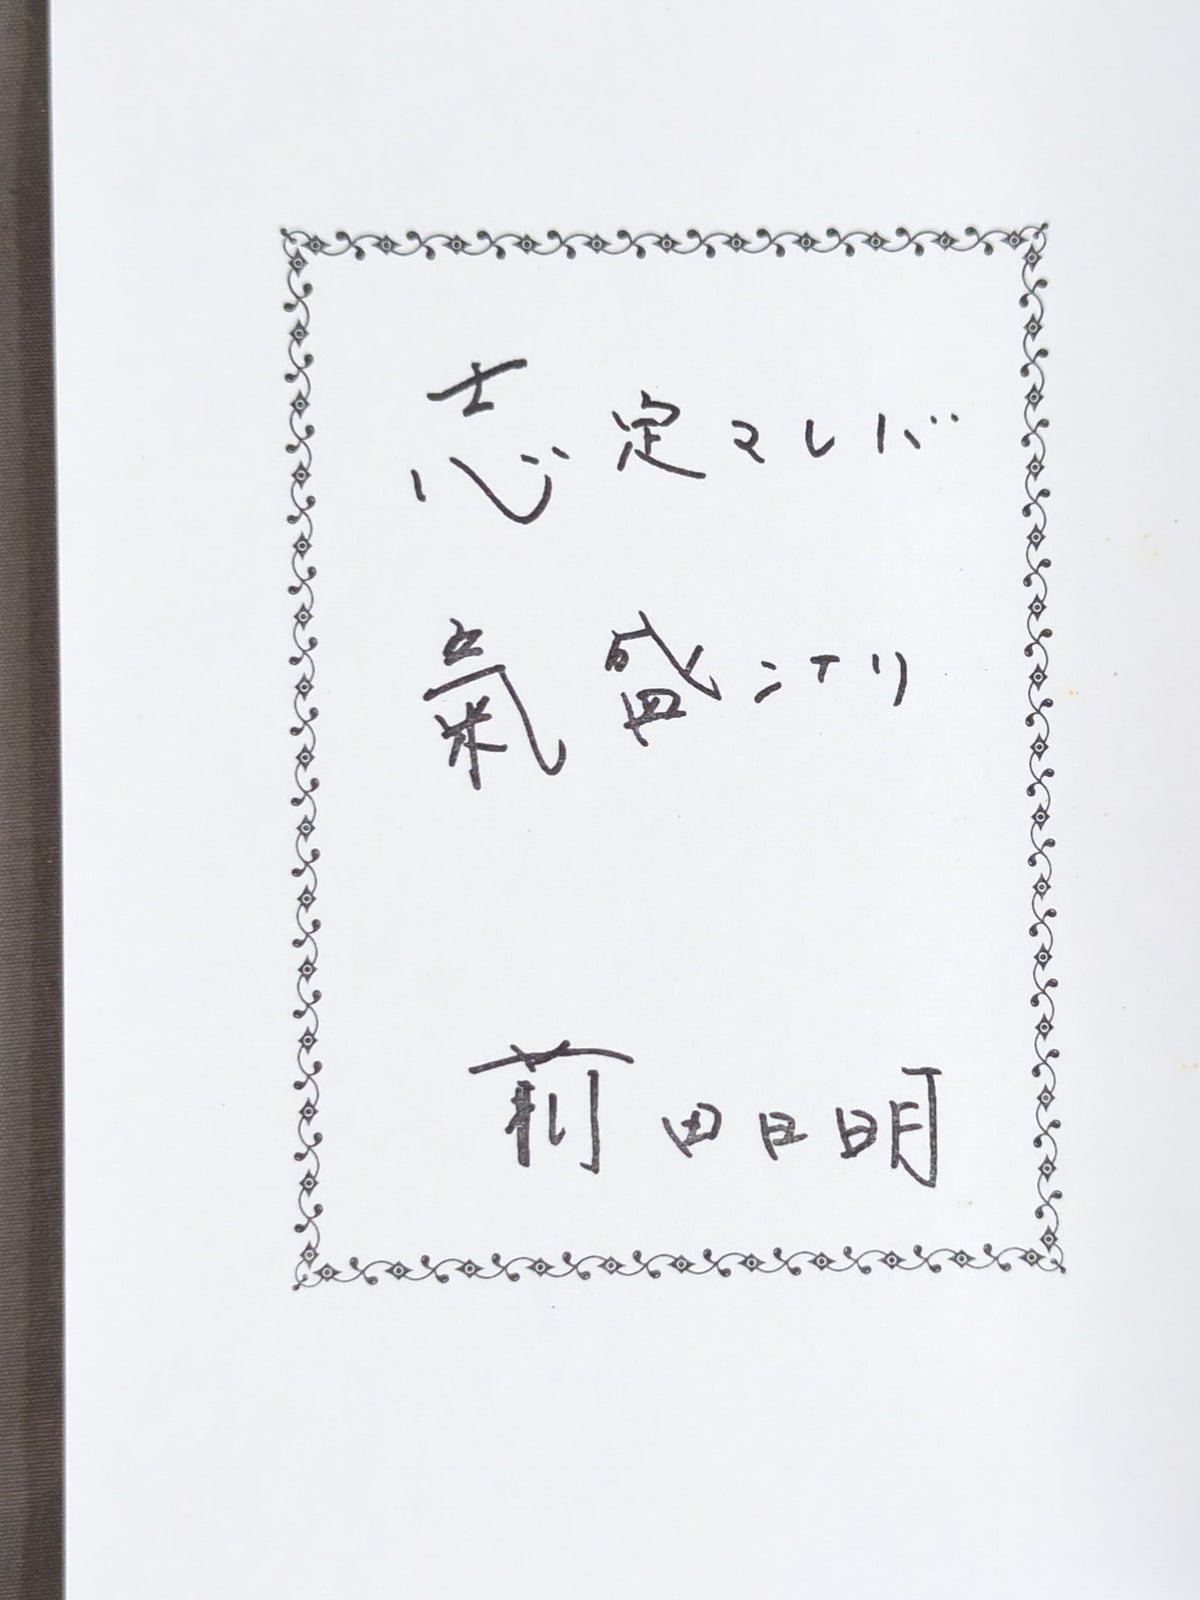 志定マレバ
氣盛ンナリ
前田日明